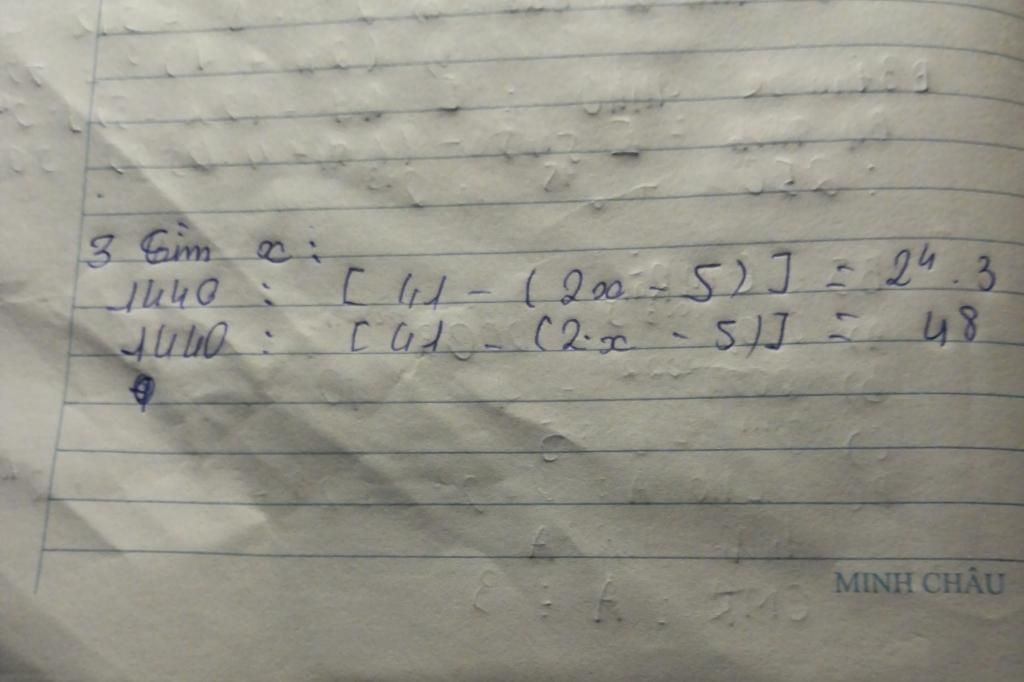 3 Tìm x :
1440 : [ 41 - ( 2x - 5 ) ] = 2⁴ . 3
1440 : [ 41 - ( 2.x - 5 ) ] = 48
MINH CHÂU